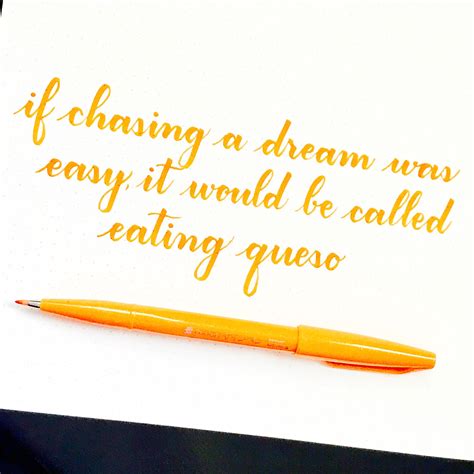 if chasing a dream was
easy, it would be called
eating queso